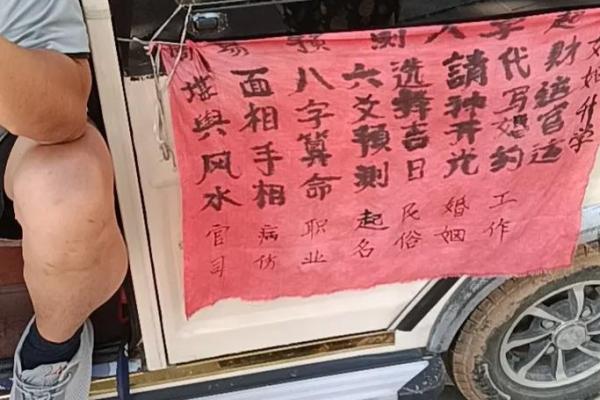 易预测八字起
堪與风水
面相手相
八字算命
六爻預测
选择吉日
請神开光
代写婚约
财运官运
姻升学
官司
病伤
职业
起名
民俗
婚姻
工作